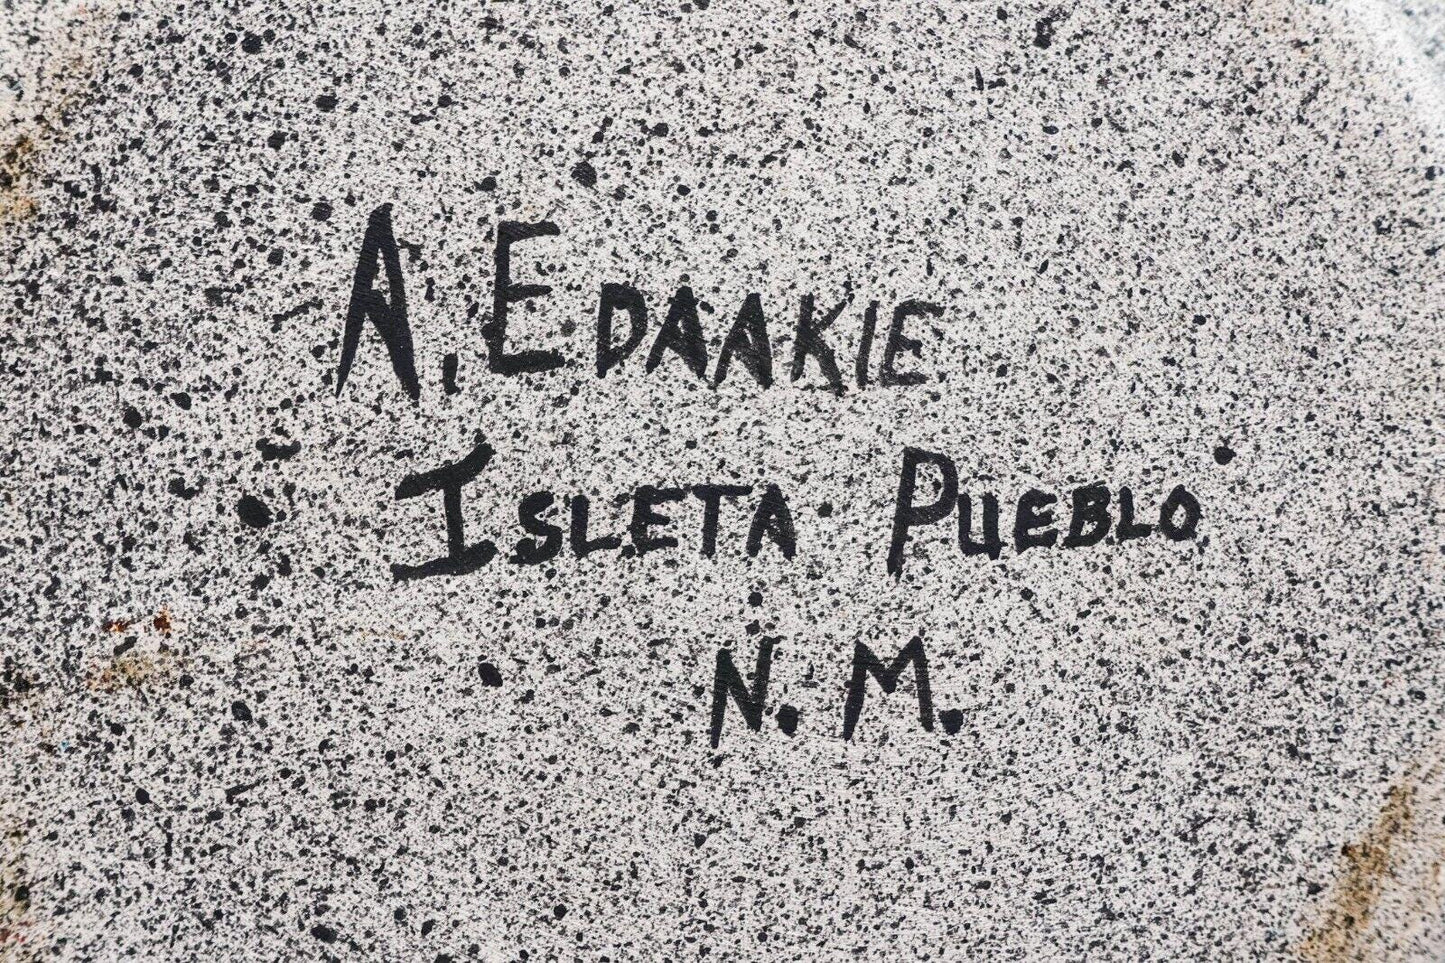 A. EDAAKIE
ISLETA PUEBLO
N.M.